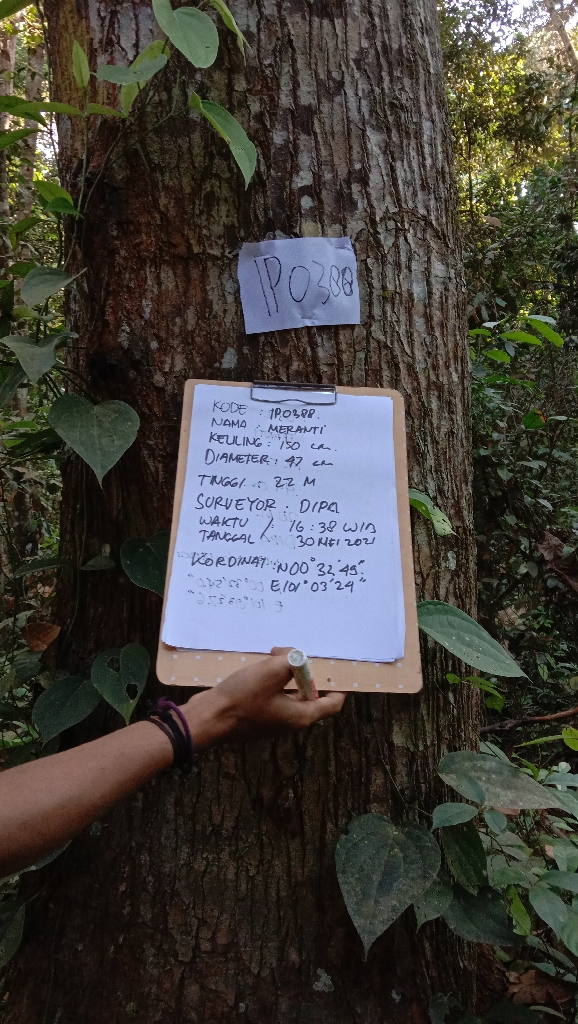 IP0388
KODE : IP0388.
NAMA : MERANTI
KELILING : 150 cm.
DIAMETER : 47 cm
TINGGI : 22 M
SURVEYOR : DIPA
WAKTU / 16:38 WIB
TANGGAL / 30 MEI 2021
KORDINAT : N00°32'45".
E101°03'24"